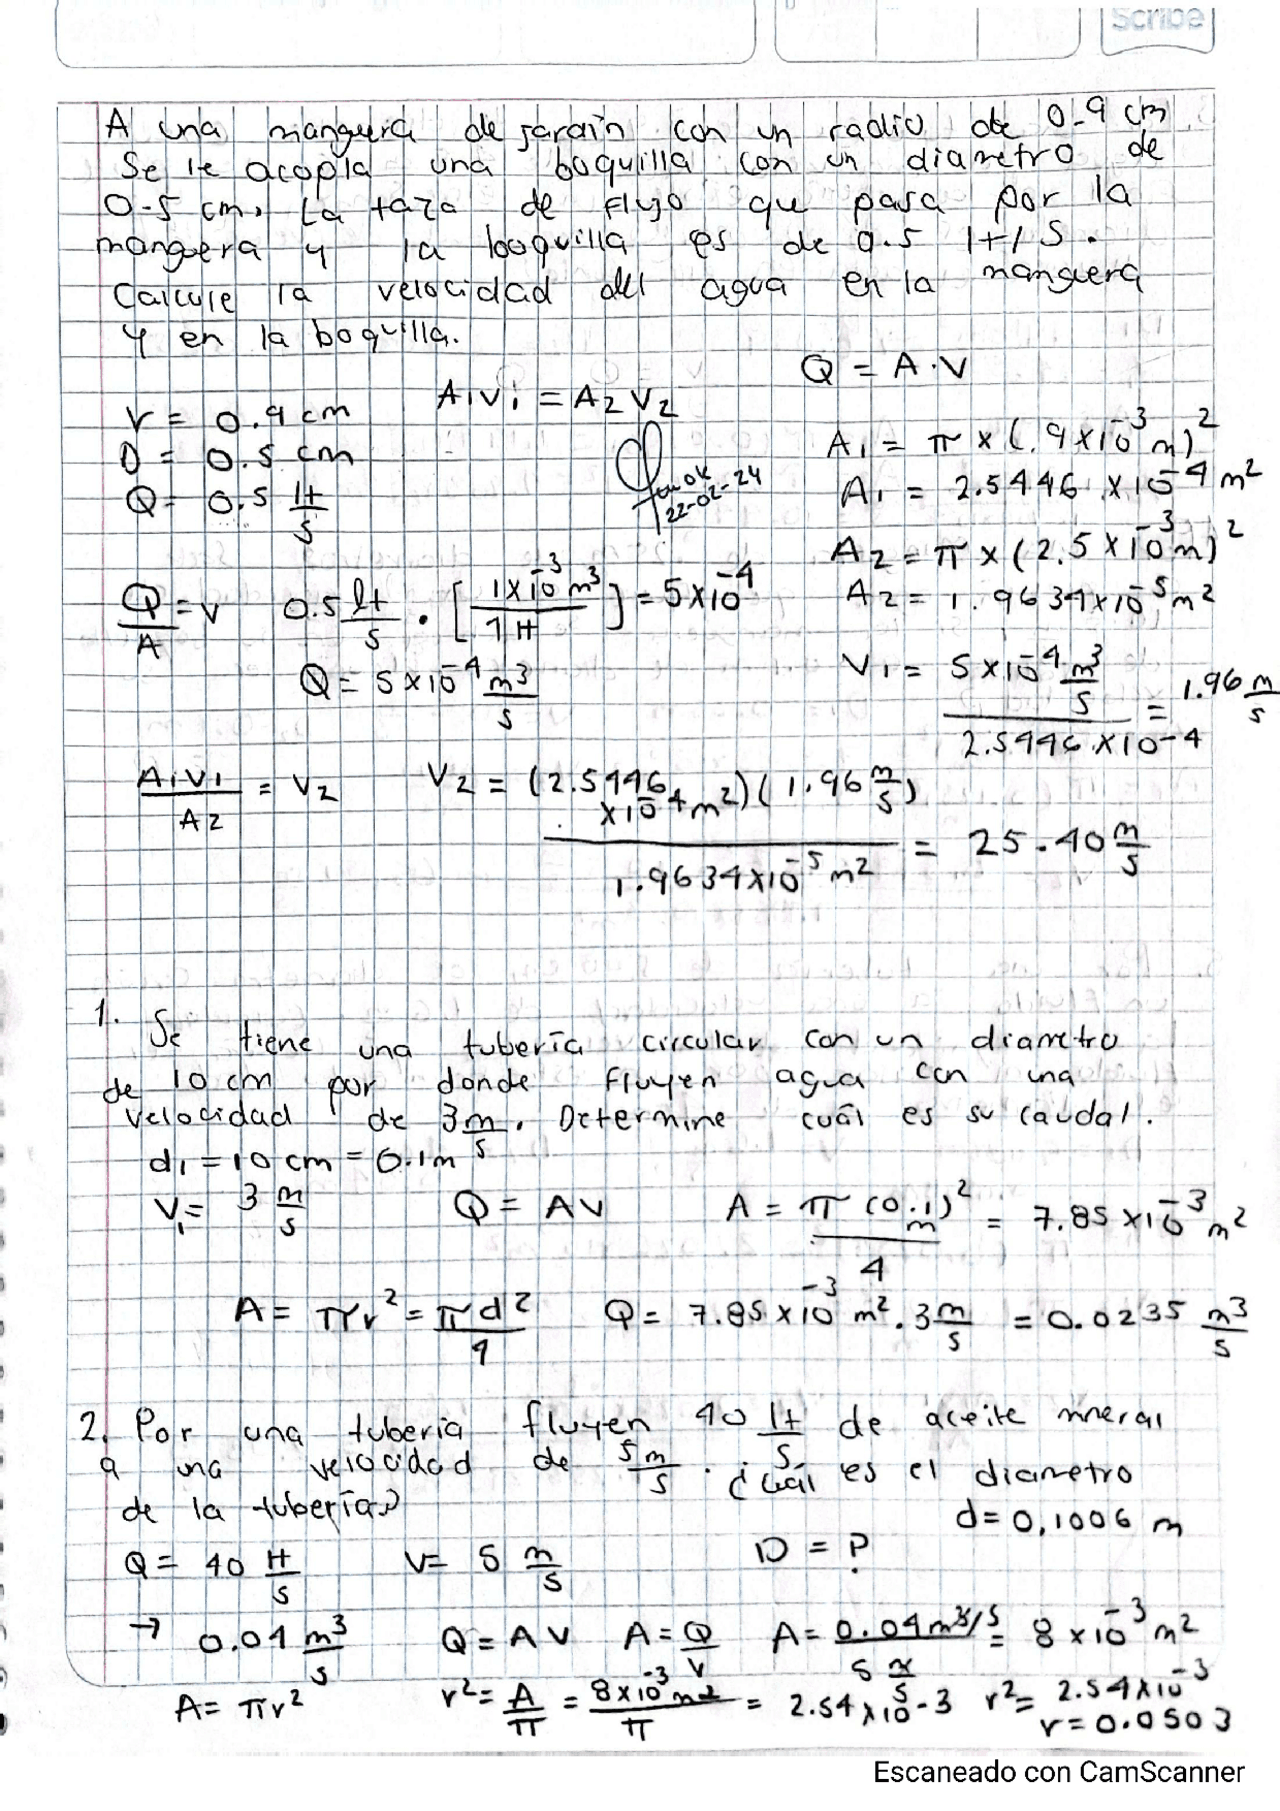 Scribe
A una manguera de jardín con un radio de 0.9 cm
Se le acopla una boquilla con un diametro de
0.5 cm. La taza de flujo que pasa por la
manguera y la boquilla es de 0.5 lt/s.
Calcule la velocidad del agua en la manguera
y en la boquilla.
Q = A·V
r = 0.9 cm
A₁V₁ = A₂V₂
D = 0.5 cm
Q = 0.5 lt/s
22-02-24
A₁ = π × (.9×10⁻³m)²
A₁ = 2.5446 ×10⁻⁴ m²
A₂ = π × (2.5×10⁻³m)²
A₂ = 1.9634×10⁻⁵ m²
Q/A = V 0.5 lt/s · [1×10⁻³ m³/1 lt] = 5×10⁻⁴
Q = 5×10⁻⁴ m³/s
V₁ = 5×10⁻⁴ m³/s / 2.5446×10⁻⁴ = 1.96 m/s
A₁V₁/A₂ = V₂ V₂ = (2.5446×10⁻⁴m²)(1.96 m/s) / 1.9634×10⁻⁵ m² = 25.40 m/s
1. Se tiene una tubería circular con un diametro
de 10 cm por donde fluyen agua con una
velocidad de 3 m/s. Determine cuál es su caudal.
d₁ = 10 cm = 0.1m
V₁ = 3 m/s Q = AV A = π(0.1m)²/4 = 7.85×10⁻³ m²
A = πr² = πd²/4 Q = 7.85×10⁻³ m² · 3 m/s = 0.0235 m³/s
2. Por una tubería fluyen 40 lt/s de aceite mineral
a una velocidad de 5 m/s. ¿Cuál es el diametro
de la tubería?
d = 0,1006 m
Q = 40 lt/s V = 5 m/s D = ?
→ 0.04 m³/s Q = AV A = Q/V A = 0.04 m³/s / 5 m/s = 8×10⁻³ m²
A = πr² r² = A/π = 8×10⁻³ m²/π = 2.54×10-3 r² = 2.54×10⁻³
r = 0.0503
Escaneado con CamScanner